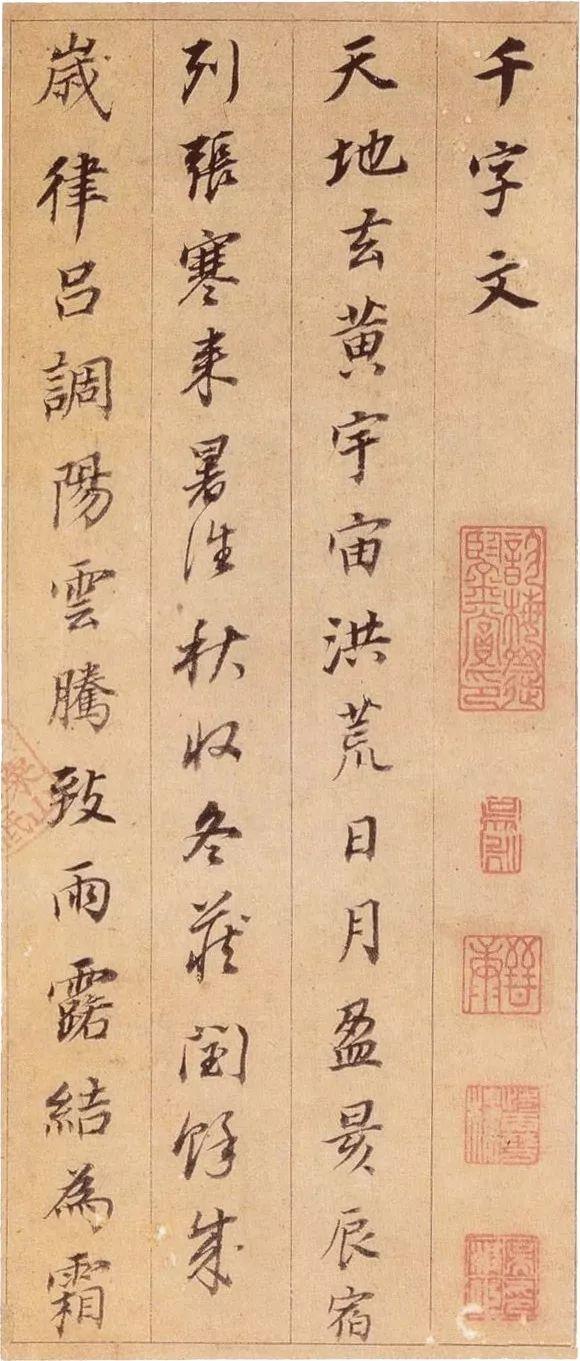 千字文
天地玄黃宇宙洪荒日月盈昃辰宿
列張寒来暑往秋收冬蔵閏餘成
歳律呂調陽雲騰致雨露結為霜